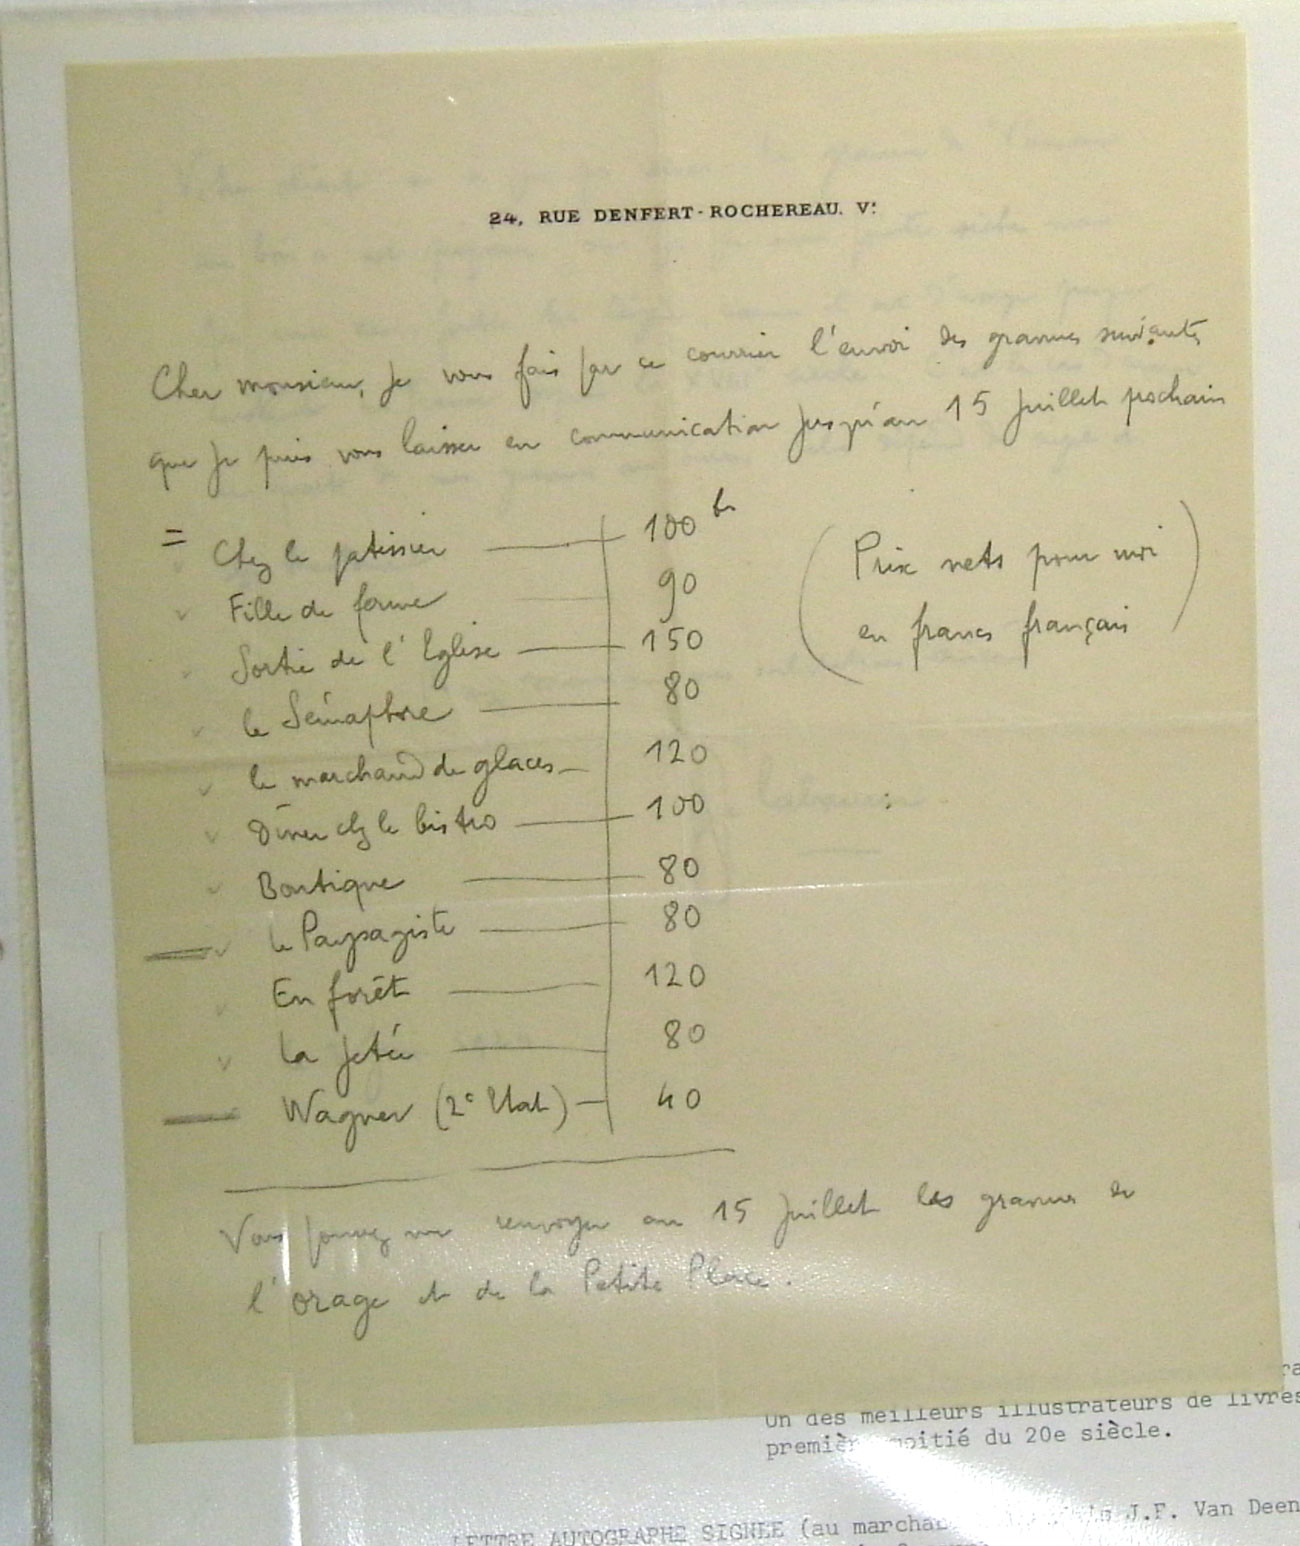 24, RUE DENFERT-ROCHEREAU. Ve
Cher monsieur, Je vous fais par ce courrier l'envoi des gravures suivantes
que Je puis vous laisser en communication jusqu'au 15 Juillet prochain
= Chez le patissier — 100 frs
Fille de ferme 90
Sortie de l'Eglise — 150
le Sémaphore — 80
le marchand de glaces — 120
Diner chz le bistro — 100
Boutique — 80
le Paysagiste — 80
En forêt — 120
La Jetée — 80
Wagner (2e Etat) — 40
(Prix nets pour moi
en francs français)
Vous pouvez me renvoyer au 15 Juillet les gravures de
l'orage et de la Petite Place.
Un des meilleurs illustrateurs de livres
première moitié du 20e siècle.
LETTRE AUTOGRAPHE SIGNEE (au J.F. Van Deen